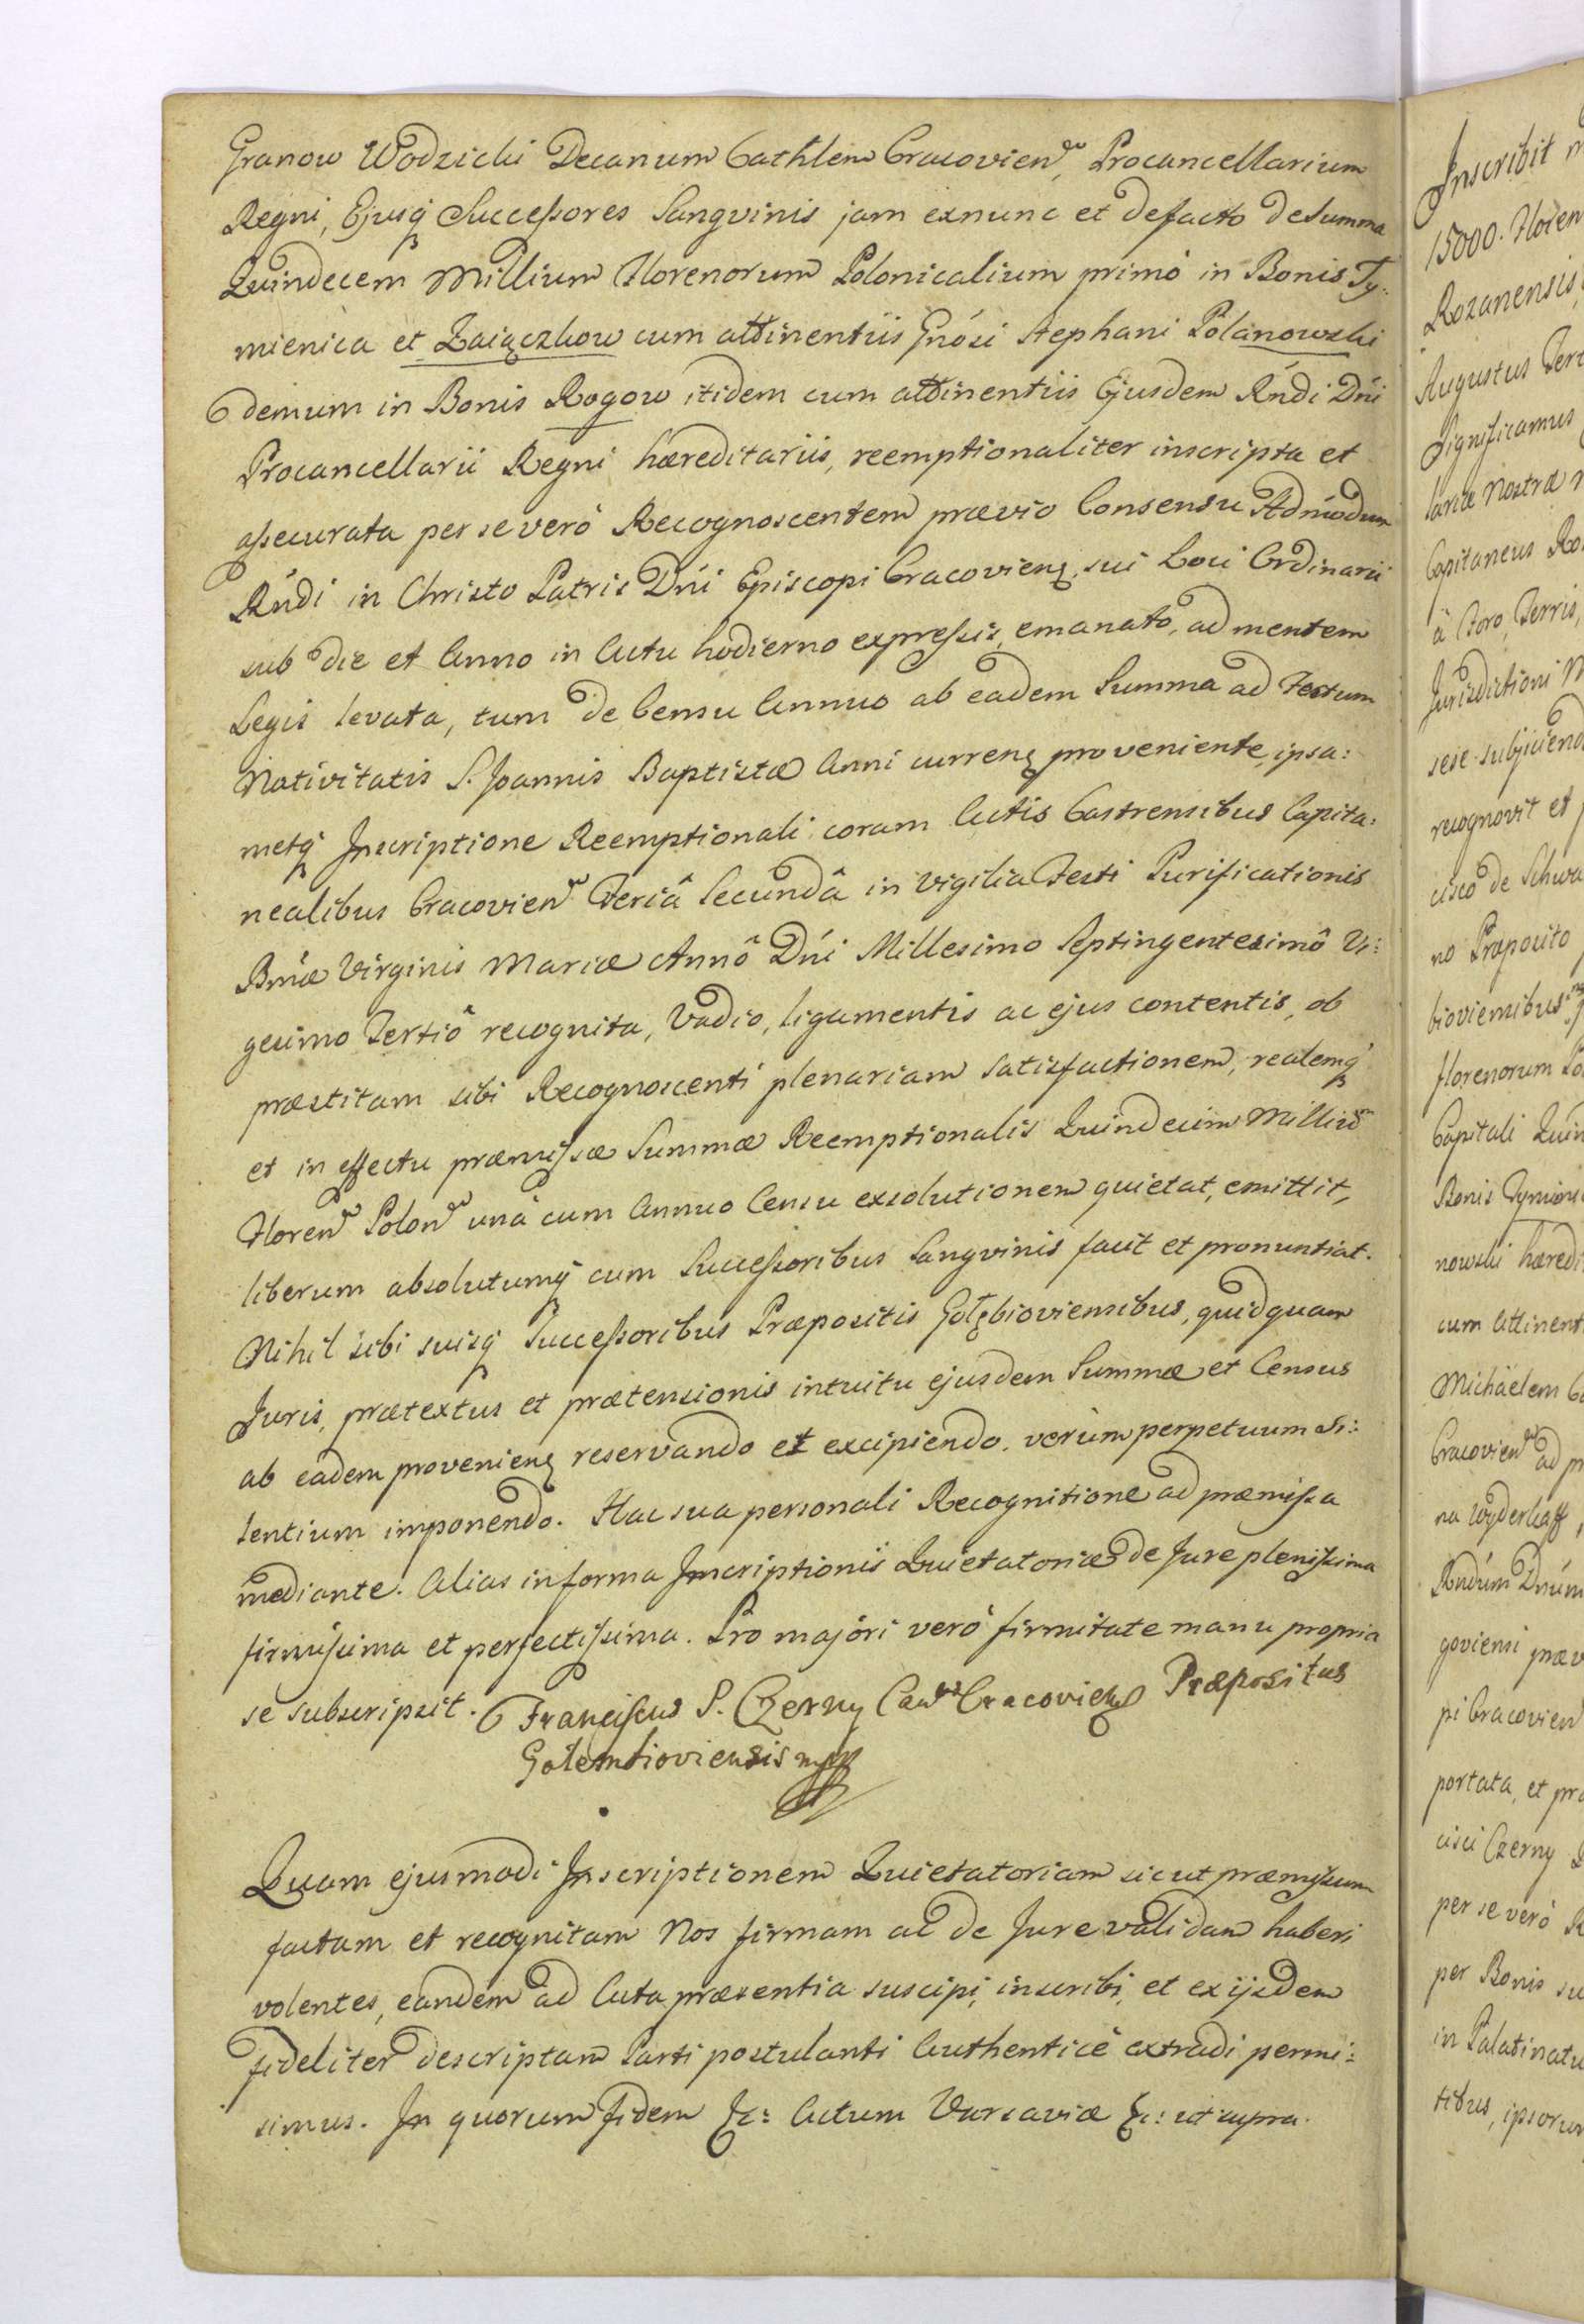 Granow Wodzicki Decanum Cathlem Cracovien, Procancellarium
Regni, Ejusq Successores Sangvinis jam exnunc et defacto de Summa
Quindecem Millium Florenorum Polonicalium primò in Bonis Ty:
mienica et Zaiączkow cum attinentiis Gnósi Stephani Polanowski
demum in Bonis Rogow itidem cum attinentiis Ejusdem Rńdi Dńi
Procancellarii Regni hæreditariis, reemptionaliter inscripta et
assecurata per se verò Recognoscentem prævio Consensu Admodum
Rńdi in Christo Patris Dńi Episcopi Cracovien, sui Loci Ordinarii
sub die et Anno in Actu hodierno expressis, emanato, ad mentem
Legis levata, tum de Censu Annuo ab eadem Summa ad Festum
Nativitatis S. Joannis Baptistæ Anni curren proveniente, ipsa:
metq Inscriptione Reemptionali coram Actis Castrensibus Capita:
nealibus Cracovien Feriâ Secundâ in Vigilia Festi Purificationis
Bmæ Virginis Mariæ Annô Dńi Millesimo Septingentesimô Vi:
gesimo Tertiô recognita, Vadio, ligamentis ac ejus contentis, ob
præstitam sibi Recognoscenti plenariam satisfactionem, realemq
et in effectu præmissæ Summæ Reemptionalis Quindecim Milliu
Floren Polon unà cum Annuo Censu exsolutionem quietat, emittit,
liberum absolutumq cum Successoribus Sangvinis facit et pronuntiat.
Nihil sibi suisq Successoribus Præpositis Gołębioviensibus, quidquam
Juris, prætextus et prætensionis intuitu ejusdem Summæ et Census
ab eadem provenien reservando et excipiendo, verùm perpetuum Si:
lentium imponendo. Hac sua personali Recognitione ad præmissa
mediante. Alias in forma Inscriptionis Quietatoriæ de Jure plenissima
firmissima et perfectissima. Pro majori verò firmitate manu propria
se subscripsit. Franciscus S. Czerny Can Cracovien Præpositus
Golembioviensis mpp
Quam ejusmodi Inscriptionem Quietatoriam sicut præmissum
factam et recognitam Nos firmam ac de Jure validam haberi
volentes, eandem ad Acta præsentia suscipi, inscribi, et ex ijsdem
fideliter descriptam Parti postulanti Authenticè extradi permi:
simus. In quorum fidem &c: Actum Varsaviæ &c: ut supra.
Inscribit
15000. Floren
Rozanensis
Augustus Ter
Significamus
lariæ Nostræ
Capitaneus Ro
à Foro, Terris,
Jurisdictioni
sese subjiciend
recognovit et
cisco de Schwa
no Præposito
bioviensibus
florenorum Po
Capitali Quin
Bonis Tymieni
nowski hæredi
cum Attinent
Michäelem
Cracovien ad
na Wyderkaff,
Rńdum Dńum
goviensi præv
pi Cracovien
portata, et pr
cisci Czerny
per se verò R
per Bonis su
in Palatinatu
tibus, ipsorum